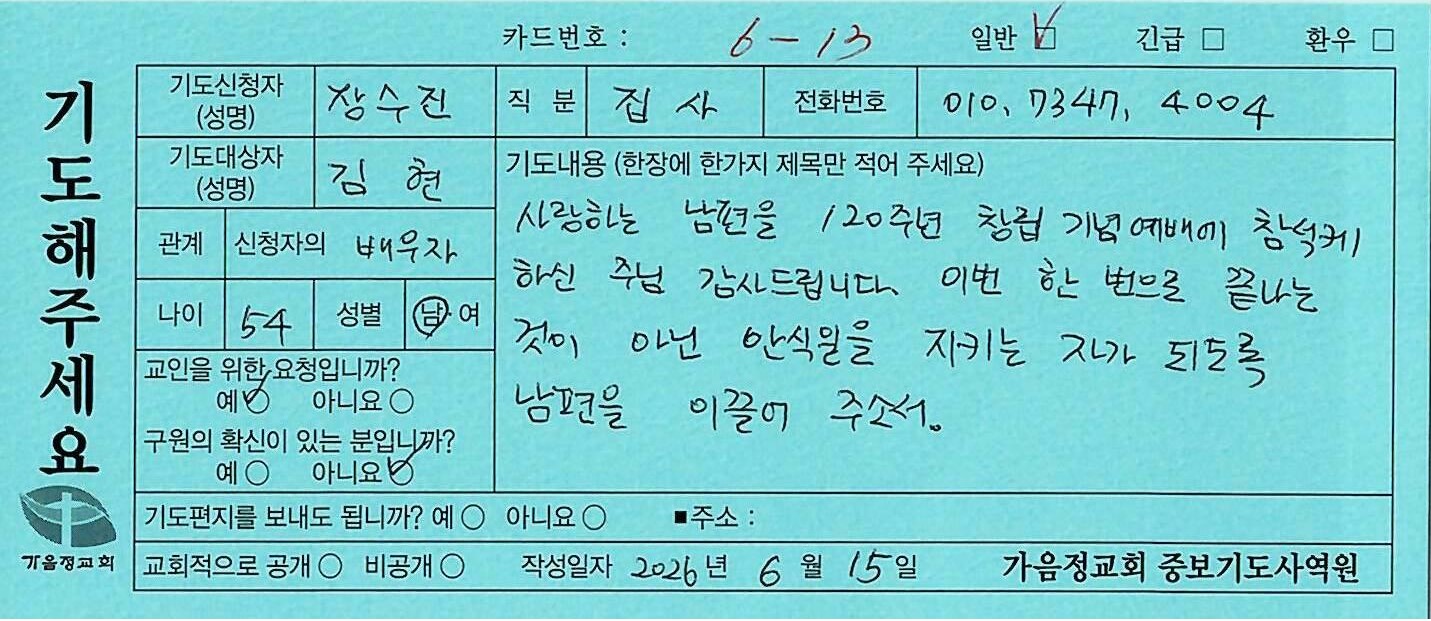 카드번호 : 6-13 일반 ☑ 긴급 □ 환우 □
기도해주세요
가음정교회
기도신청자 (성명) 장수진 직 분 집사 전화번호 010. 7347. 4004
기도대상자 (성명) 김현
관계 신청자의 배우자
나이 54 성별 남·여
교인을 위한 요청입니까?
예 ○ 아니요 ○
구원의 확신이 있는 분입니까?
예 ○ 아니요 ○
기도내용 (한장에 한가지 제목만 적어 주세요)
사랑하는 남편을 120주년 창립 기념예배에 참석케
하신 주님 감사드립니다. 이번 한 번으로 끝나는
것이 아닌 안식일을 지키는 자가 되도록
남편을 이끌어 주소서.
기도편지를 보내도 됩니까? 예 ○ 아니요 ○ ■주소 :
교회적으로 공개 ○ 비공개 ○ 작성일자 2026년 6월 15일 가음정교회 중보기도사역원